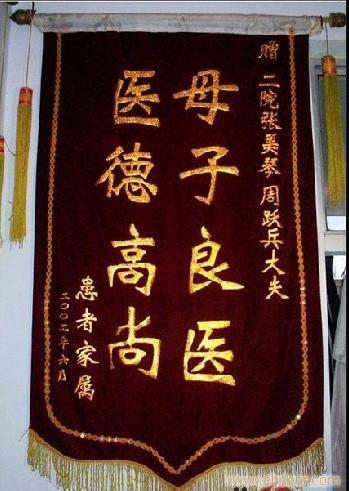 赠 二院张美琴 周跃兵大夫
母子良医
医德高尚
患者家属
二〇〇二年六月